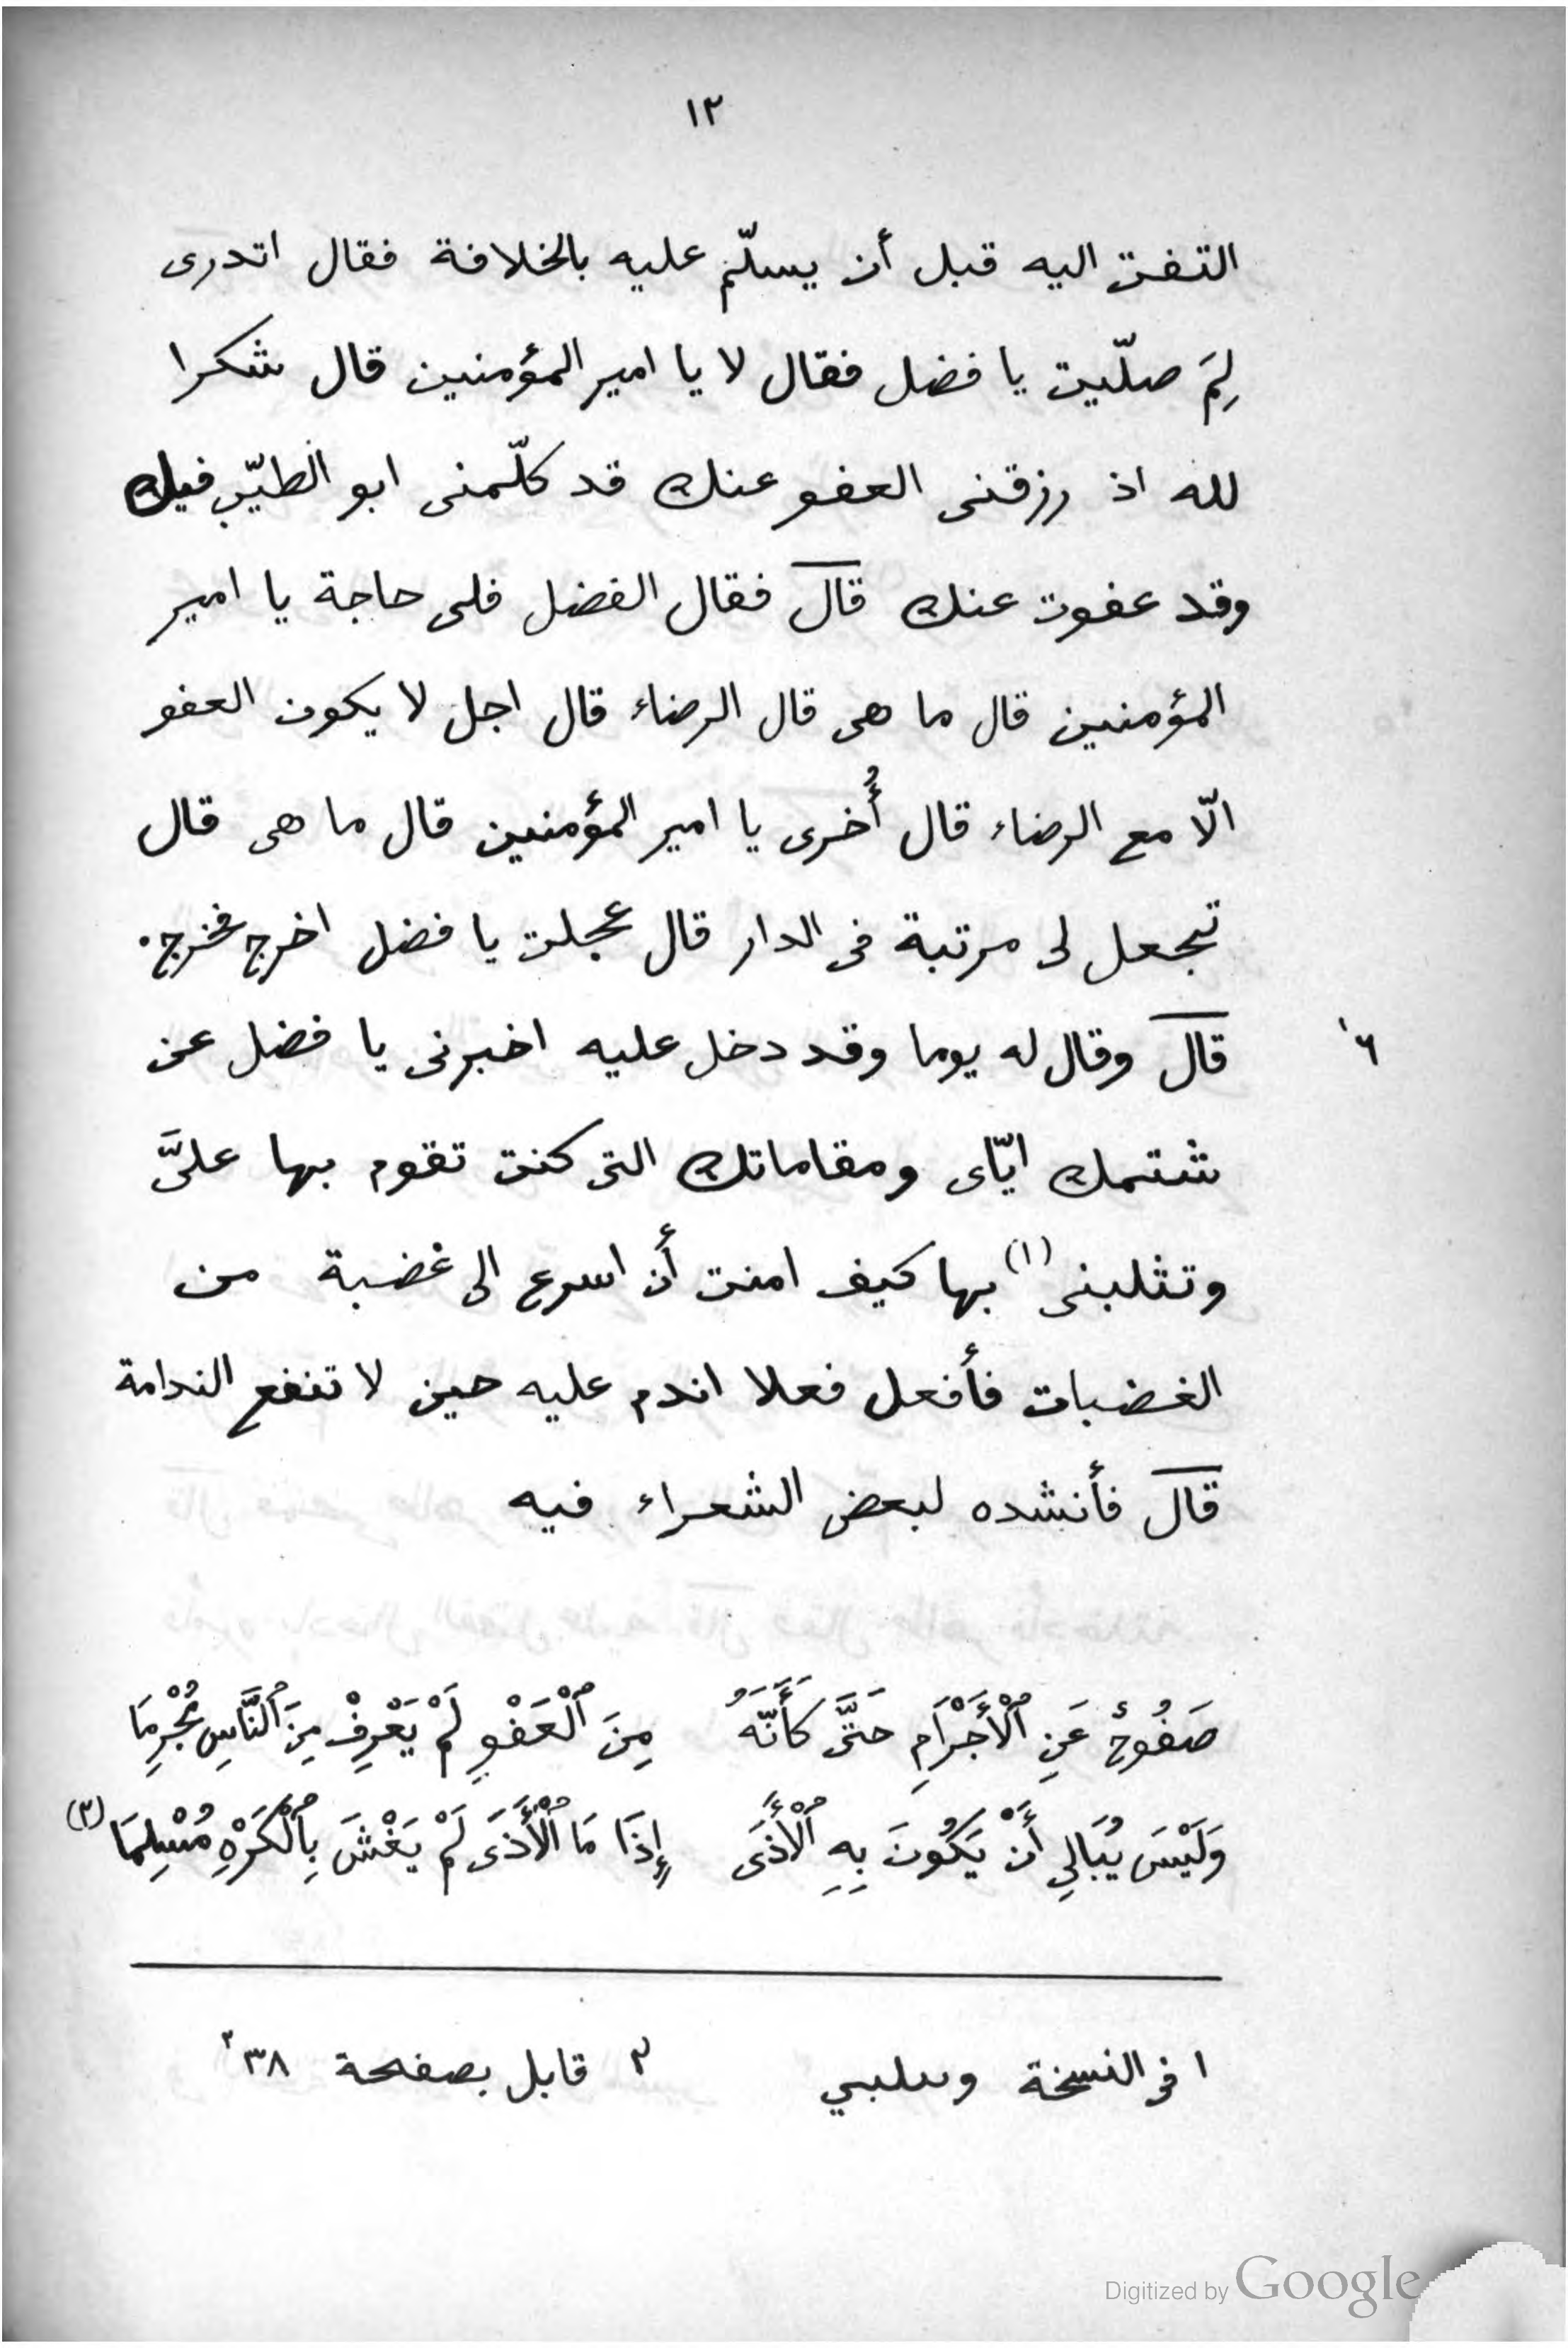 ١٢
التفت اليه قبل أن يسلّم عليه بالخلافة فقال اتدرى
لِمَ صلّيت يا فضل فقال لا يا امير المؤمنين قال شكرا
لله اذ رزقنى العفو عنك قد كلّمنى ابو الطيّب فيك
وقد عفوت عنك قال فقال الفضل فلى حاجة يا امير
المؤمنين قال ما هى قال الرضاء قال اجل لا يكون العفو
الّا مع الرضاء قال أُخرى يا امير المؤمنين قال ما هى قال
تجعل لى مرتبة فى الدار قال عجلت يا فضل اخرج فخرج٠
قال وقال له يوما وقد دخل عليه اخبرنى يا فضل عن
٦
شتمك ايّاى ومقاماتك التى كنت تقوم بها علىَّ
وتثلبنى (١) بها كيف امنت أن اسرع الى غضبة من
الغضبات فأفعل فعلا اندم عليه حين لا تنفع الندامة
قال فأنشده لبعض الشعراء فيه
صَفُوحٌ عَنِ ٱلْأَجْرَامِ حَتَّى كَأَنَّهُ مِنَ ٱلْعَفْوِ لَمْ يَعْرِفْ مِنَ ٱلنَّاسِ مُجْرِمَا
وَلَيْسَ يُبَالِي أَنْ يَكُونَ بِهِ ٱلْأَذَى إِذَا مَا ٱلْأَذَى لَمْ يَغْشَ بِٱلْكَرْهِ مُسْلِمَا (٢)
١ فى النسخة وىىلبي ٢ قابل بصفحة ٣٨
Digitized by Google